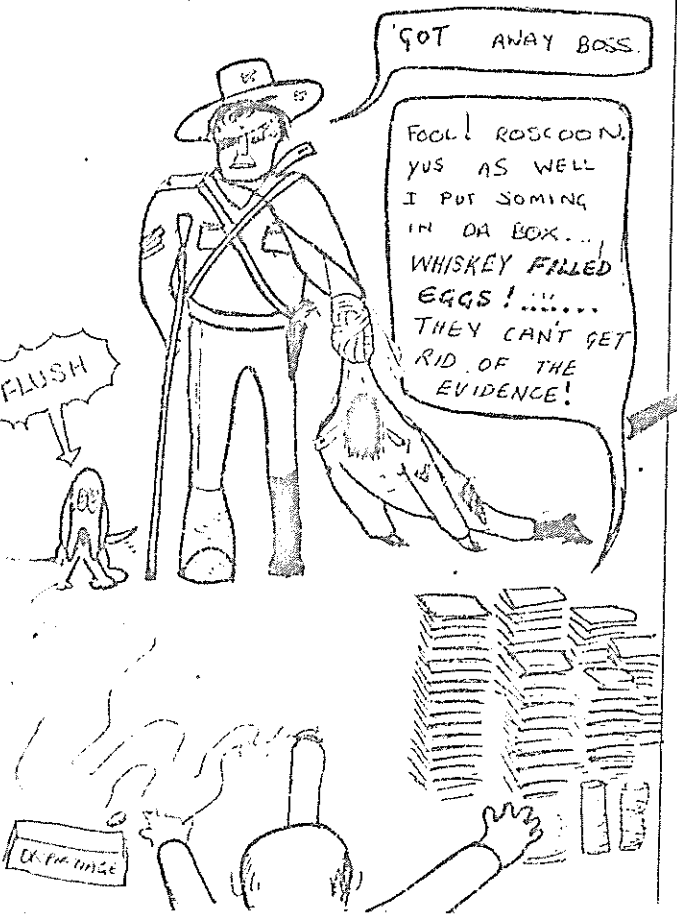 'GOT AWAY BOSS.
FOOL! ROSCOON.
YUS AS WELL
I PUT SOMING
IN DA BOX...
WHISKEY FILLED
EGGS!......
THEY CAN'T GET
RID OF THE
EVIDENCE!
FLUSH
ORPHANAGE